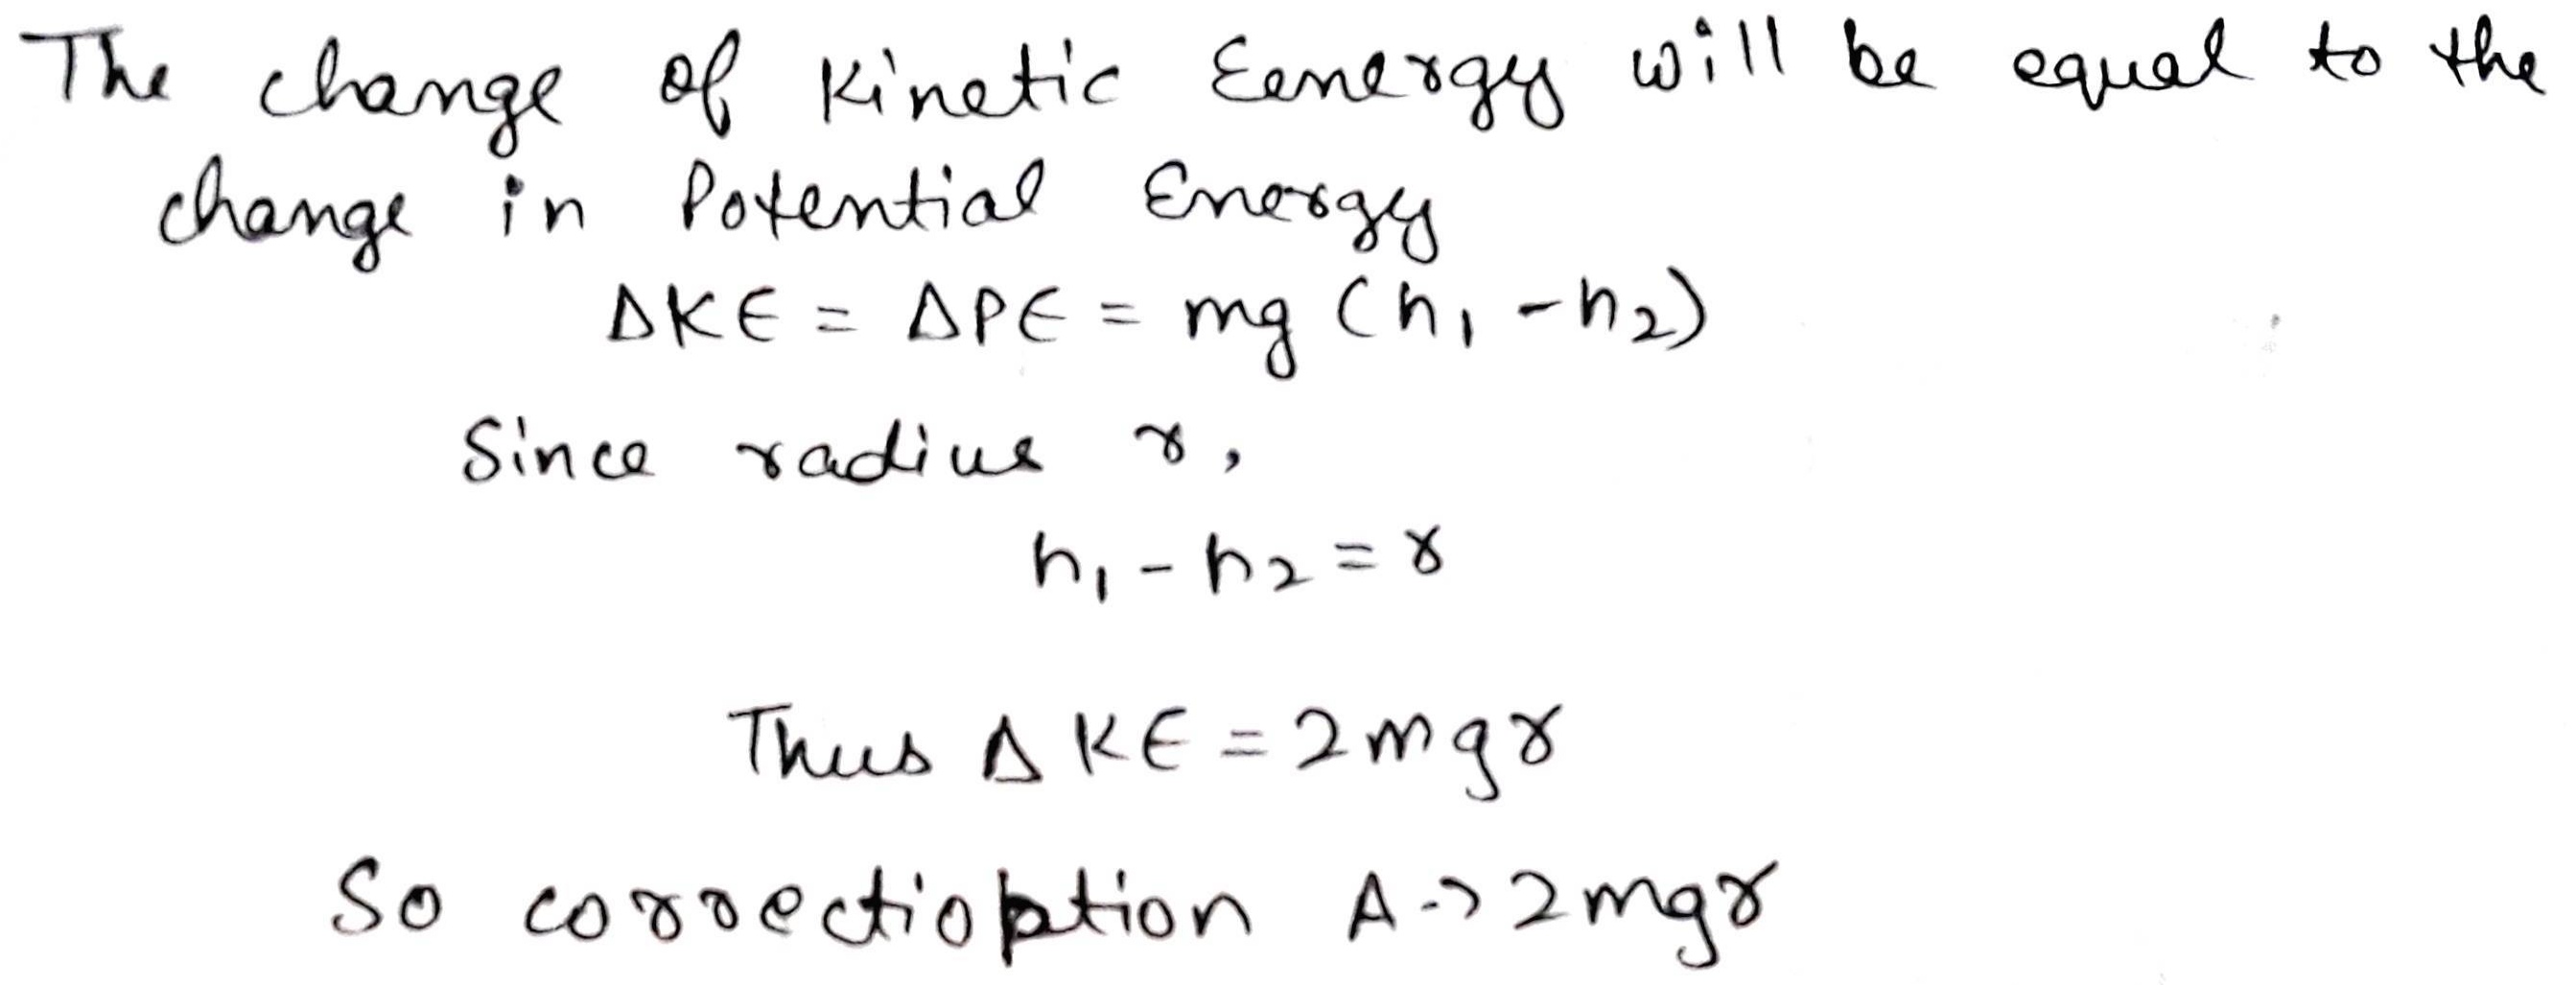 The change of Kinetic Eenergy will be equal to the
change in Potential Energy
ΔKE = ΔPE = mg (h₁ - h₂)
Since radius r,
h₁ - h₂ = r
Thus Δ KE = 2mgr
So correctioption A -> 2mgr